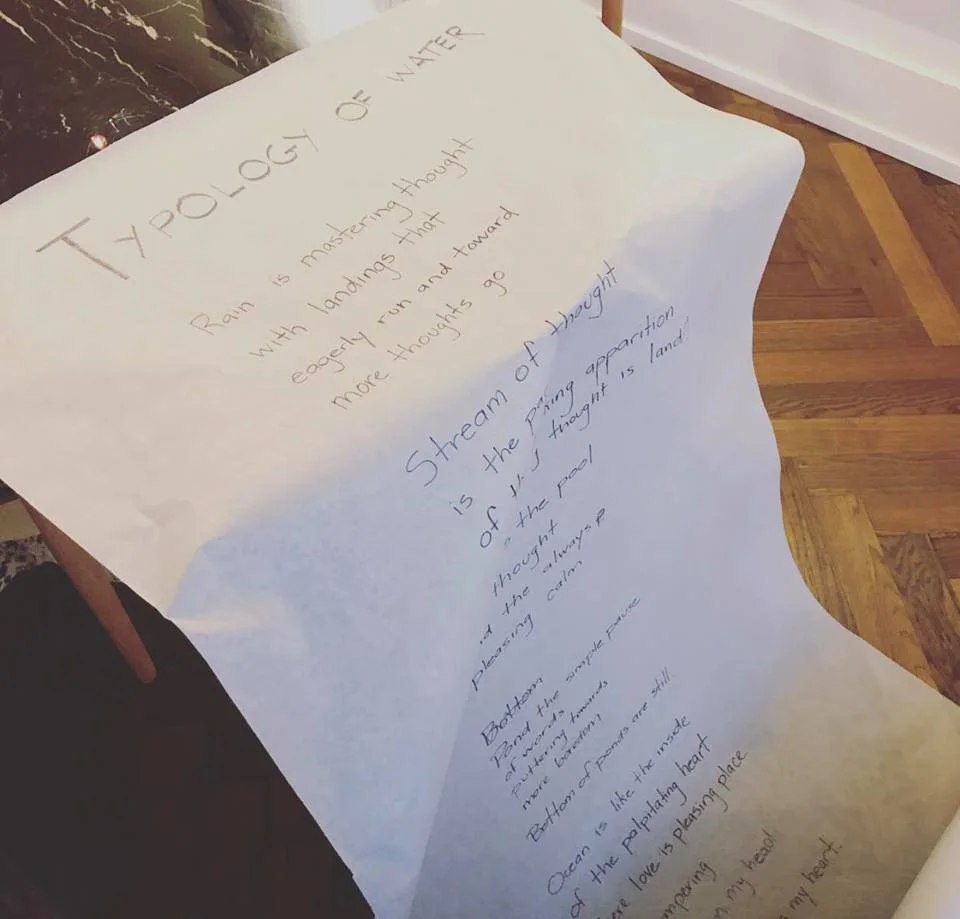 TYPOLOGY OF WATER
Rain is mastering thought
with landings that
eagerly run and toward
more thoughts go
Stream of thought
is the apparition
of thought is land
the pool
thought
the always
pleasing calm
Bottom
Pond the simple pause
of words
puttering towards
more bordom
Bottom of ponds are still.
Ocean is like the inside
of the palpitating heart
love is pleasing place
my head
my heart.